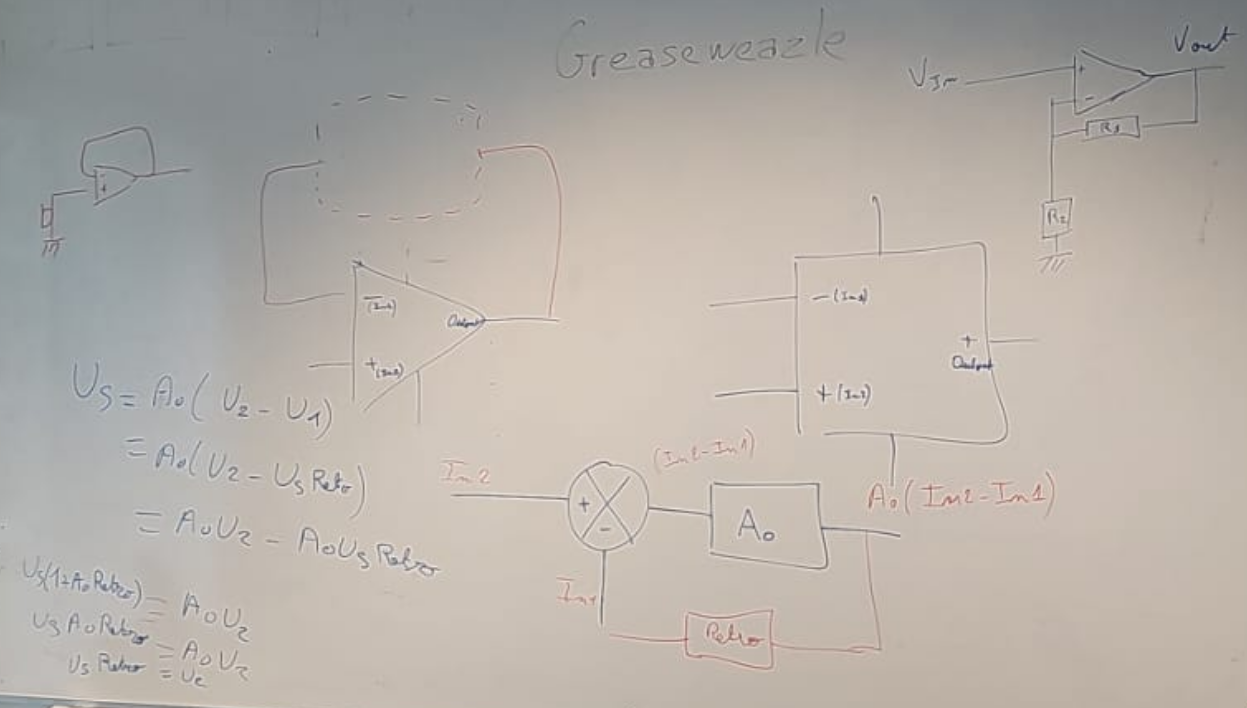 Greaseweazle
Vout
VIn
+
-
R1
R2
+
-(In1)
Output
+(In2)
-(In1)
+
Output
+(In2)
Us = A0(U2 - U1)
= A0(U2 - Us Retro)
= A0U2 - A0Us Retro
Us(1+A0 Retro) = A0U2
Us A0 Retro = A0U2
Us Retro = U2
In2
(In2-In1)
+
-
A0
A0(In2-In1)
In1
Retro